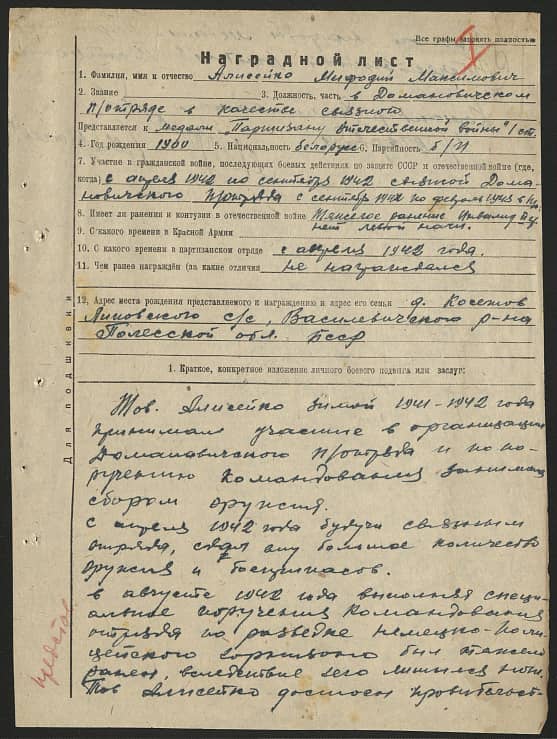 Все графы заполнять полностью
V
Наградной лист
1. Фамилия, имя и отчество Алисейко Мифодий Максимович
2. Звание 3. Должность, часть в Домановичском
п/отряде в качестве связного
Представляется к медали „Партизану отечественной войны" I ст.
4. Год рождения 1900 5. Национальность беларус 6. Партийность б/п
7. Участие в гражданской войне, последующих боевых действиях по защите СССР и отечественной войне (где,
когда) с апреля 1942 по сентября 1942 связной Дома-
новичского п/отряда с сентября 1942 по февраль 1943 в
8. Имеет ли ранения и контузии в отечественной войне Тяжелое ранение Инвалид
нет левой ноги.
9. С какого времени в Красной Армии
10. С какого времени в партизанском отряде с апреля 1942 года.
11. Чем ранее награждён (за какие отличия не награждался
12. Адрес места рождения представляемого к награждению и адрес его семьи д. Косежов
Липовского с/с, Василевичского р-на
Полесской обл. БССР
1. Краткое, конкретное изложение личного боевого подвига или заслуг:
Тов. Алисейко зимой 1941-1942 года
принимал участие в организации
Домановичского п/отряда и по по-
ручению командования занимался
сбором оружия.
С апреля 1942 года будучи связным
отряда, сдал ему большое количество
оружия и боеприпасов.
в августе 1942 года выполняя специ-
альное поручения командования
отряда по разведке немецко-поли-
цейского гарнизона был тяжело
ранен, вследствие чего лишился ноги.
Тов Алисейко достоен правительст-
Для подшивки